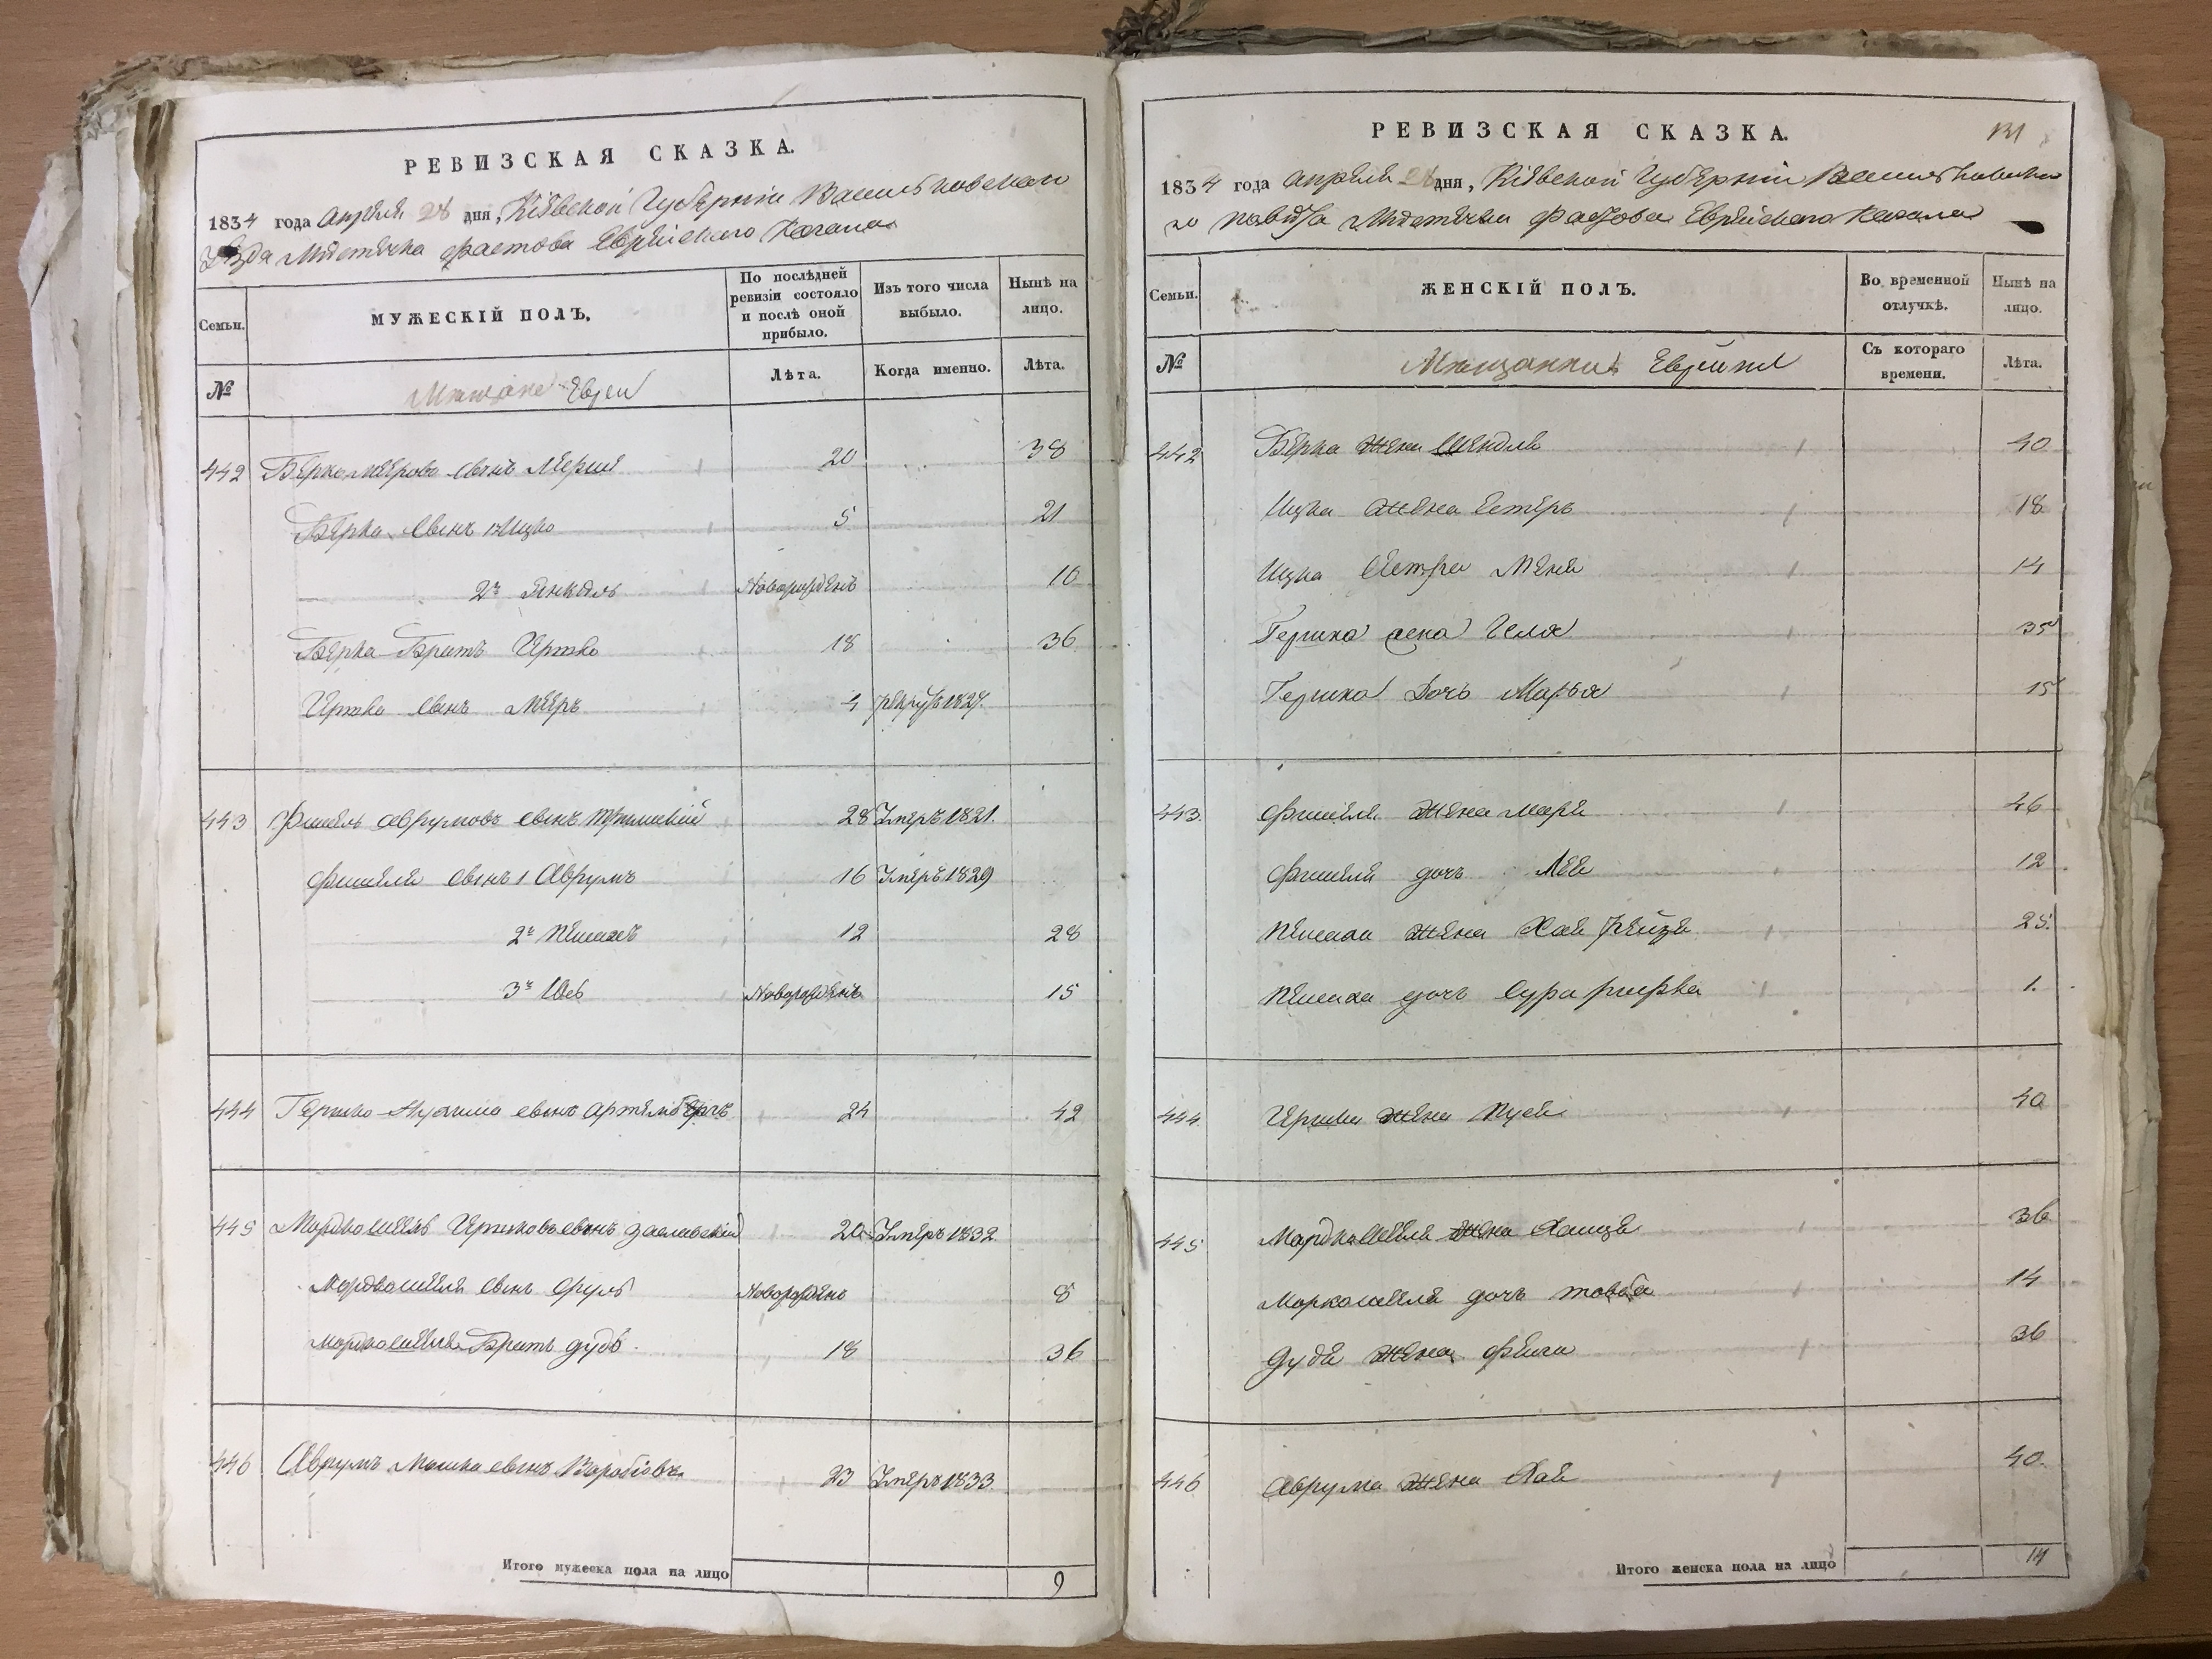 РЕВИЗСКАЯ СКАЗКА.
1834 года Апреля 28 дня, Кіевской Губерніи Васильковскаго
уезда Местечка Фастова Еврейскаго Кагала
Семьи.
МУЖЕСКІЙ ПОЛЪ.
По послѣдней ревизіи состояло и послѣ оной прибыло.
Изъ того числа выбыло.
Нынѣ на лицо.
№
Мещане Евреи
Лѣта.
Когда именно.
Лѣта.
442 Берко Меерова сынъ 20 38
Берка сынъ 1й Ицко 5 21
2й Янкель Новорожденъ 16
Берка Братъ Гершко 18 36
Гершка сынъ Мееръ 4 рекрутъ 1827.
443 Фишель Аврумовъ сынъ 28 Умеръ 1821.
Фишеля сынъ 1 Аврумъ 16 Умеръ 1829
2й Пейсахъ 12 28
3й Новорожденъ 15
444 Гершко сынъ 24 42
445 Мордко Гершковъ сынъ Заславский 20 Умеръ 1832
сынъ Сруль Новорожденъ 8
Братъ Дудь. 18 36
446 Аврумъ Мошка сынъ Воробіовъ 23 Умеръ 1833.
Итого мужеска пола на лицо 9
РЕВИЗСКАЯ СКАЗКА. 131
1834 года Апреля 28 дня, Кіевской Губерніи Васильковска
го повета Местечка Фастова Еврейскаго Кагала
Семьи.
ЖЕНСКІЙ ПОЛЪ.
Во временной отлучкѣ.
Нынѣ на лицо.
№
Мещанки Еврейки
Съ котораго времени.
Лѣта.
442 Берка жена Шендля 40
Ицка жена Естеръ 18
Ицка Сестра Меня 14
Гершка жена 35
Гершка Дочь Марья 15
443. Фишеля жена Маря 46
Фишеля дочь Лея 12
Пейсаха жена Хая Рейзя 25.
Пейсаха дочь Сура Ривка 1.
444. Гершка жена Пуся 40
445 жена 36
дочь Товба 14
Дудя жена Фейга 36
446 Аврума жена Хая 40.
Итого женска пола на лицо 14